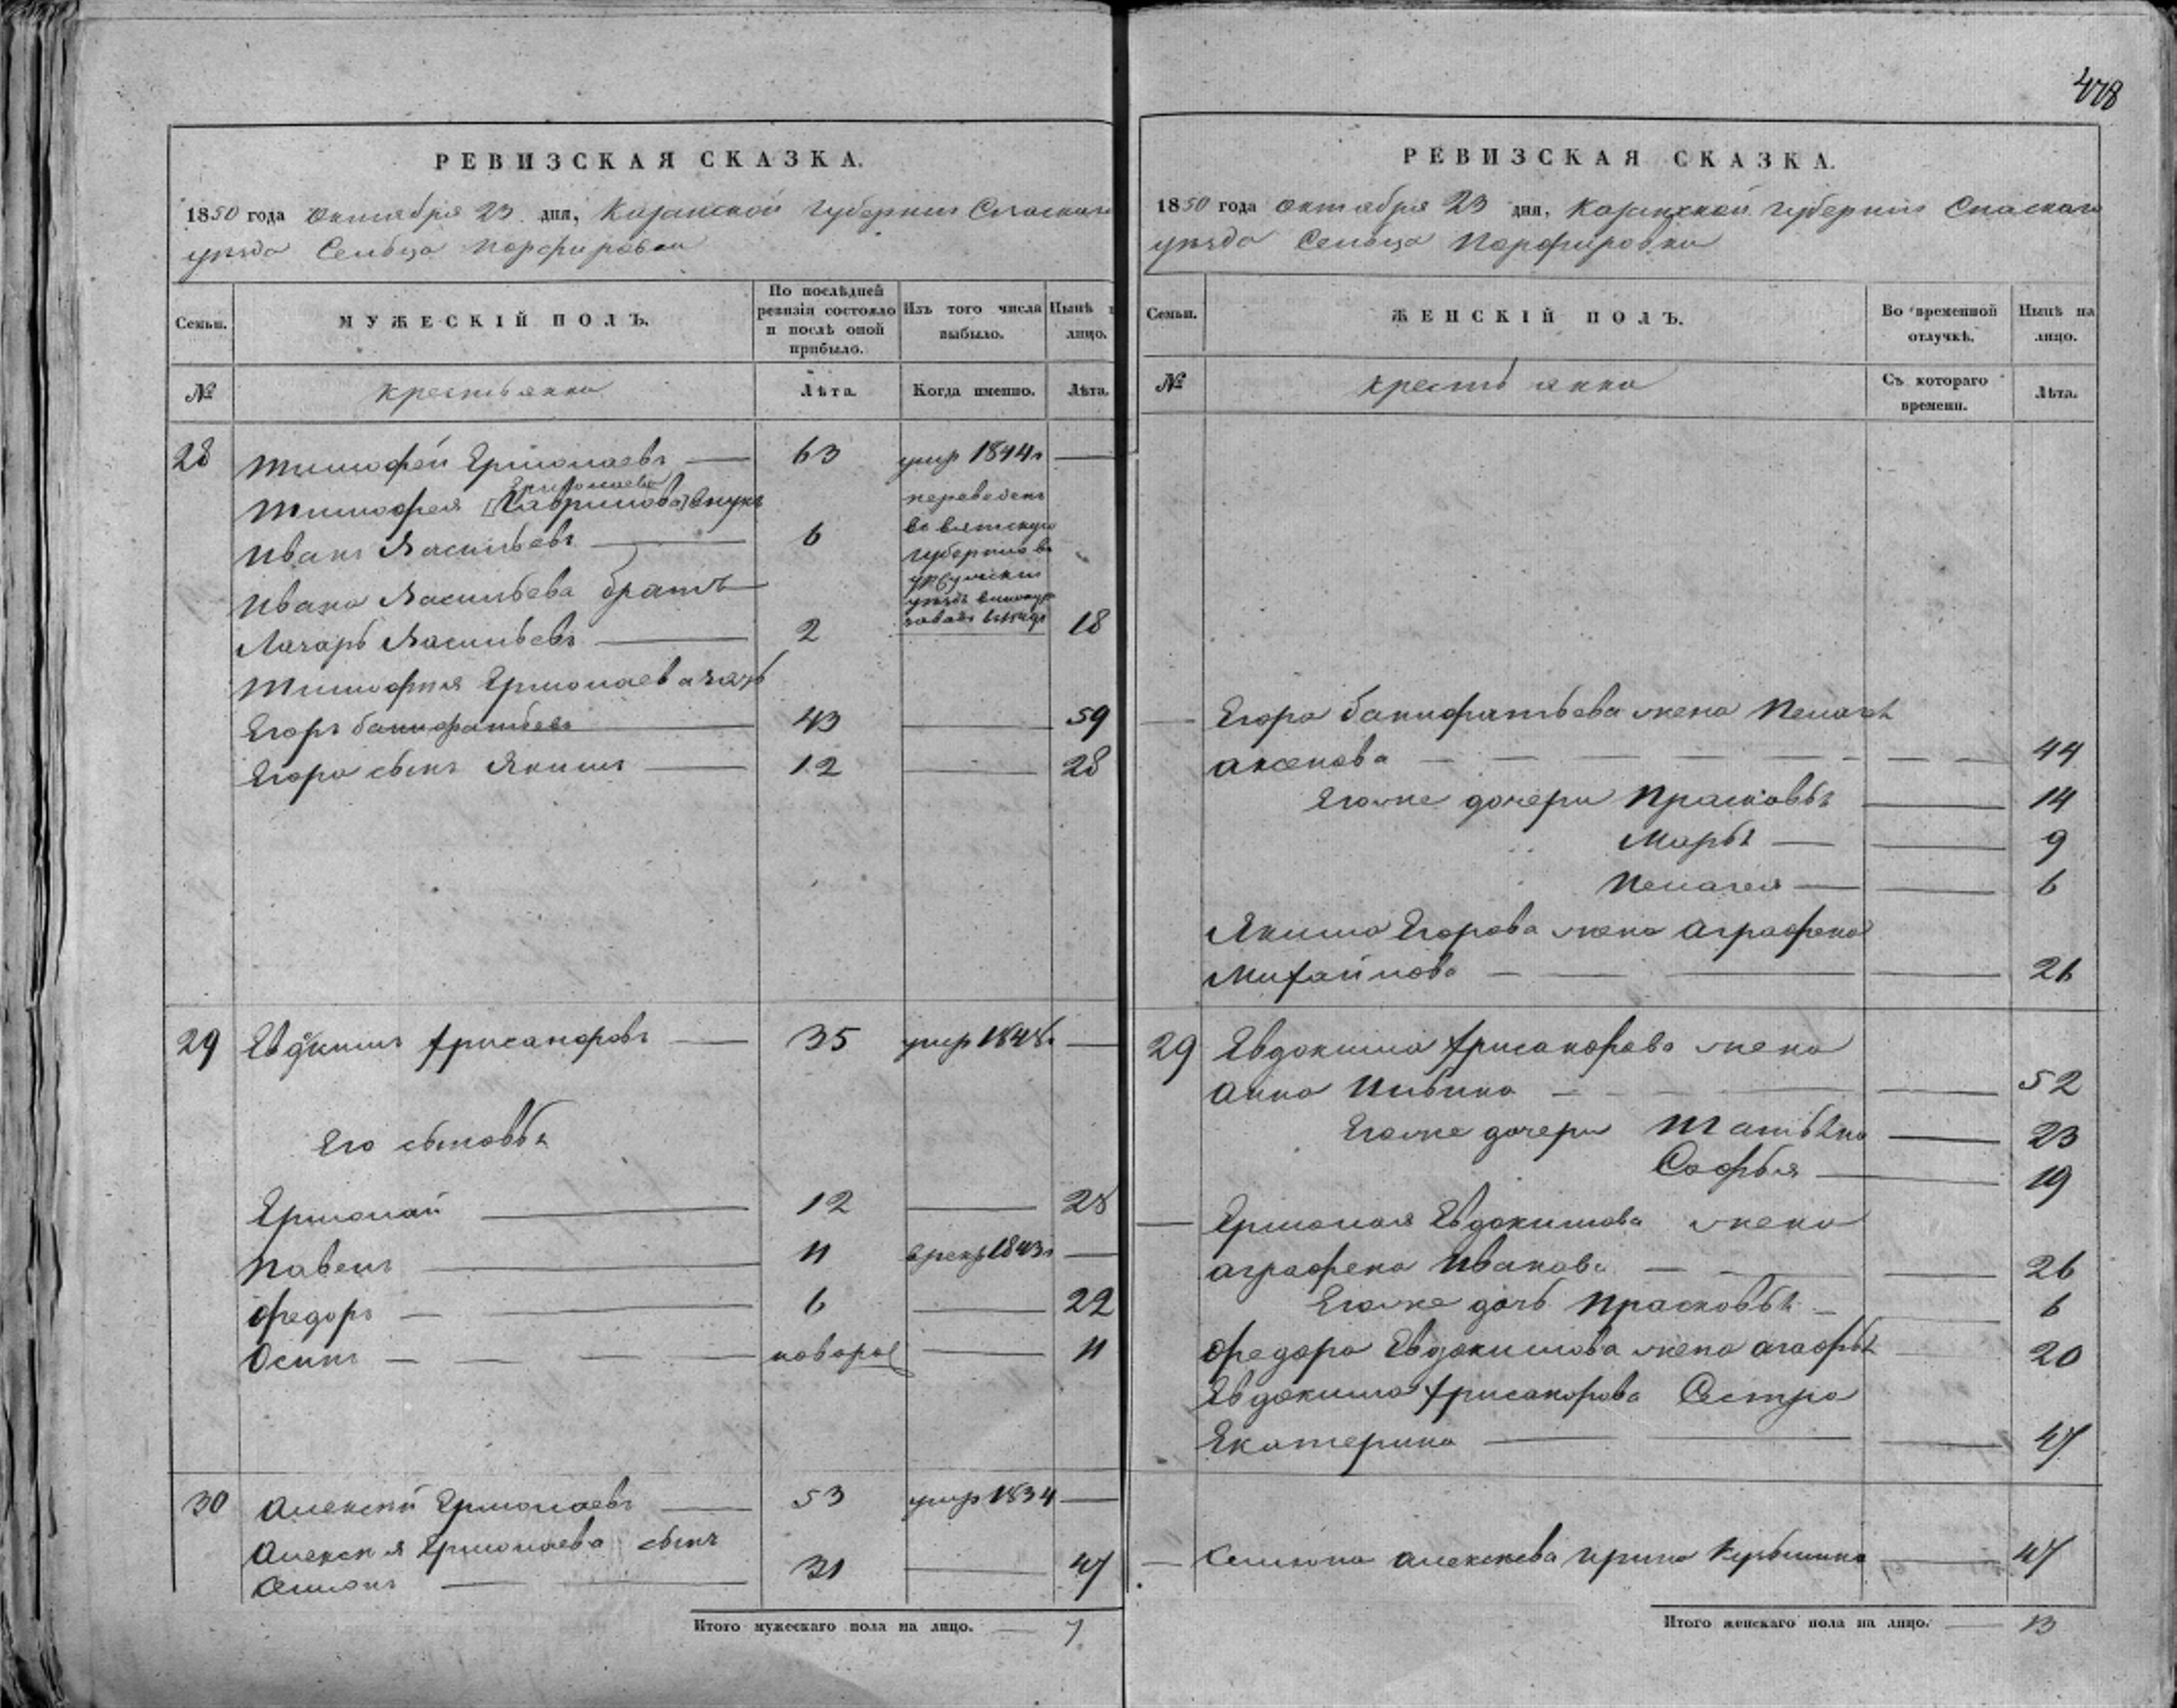 478
РЕВИЗСКАЯ СКАЗКА.
1850 года Октября 23 дня, Казанской Губернии Спаскаго
уезда Сельца Порфировки
Семьи.
МУЖЕСКІЙ ПОЛЪ.
По послѣдней ревизіи состояло и послѣ оной прибыло.
Изъ того числа выбыло.
Нынѣ на лицо.
№
крестьянки
Лѣта.
Когда именно.
Лѣта.
28 Тимофей Ермолаевъ 63 умр 1844г
Ермолаева
Тимофея [Гаврилова] внукъ
Иванъ Васильевъ 6
переведенъ
во вятскую
губернию въ
Ивана Васильева братъ
Лазарь Васильевъ 2 18
Тимофея Ермолаева зять
Егоръ банифатьевъ 43 59
Егора сынъ Якимъ 12 28
29 Евдокимъ Хрисанфовъ 35 умр 1848г
Его сыновья
Ермолай 12 28
Павелъ 11 врекр 1843г
Федоръ 6 22
Осипъ новорож 11
30 Алексей Ермолаевъ 53 умр 1834
Алексея Ермолаева сынъ
Семионъ 31 47
Итого мужескаго пола на лицо. 7
РЕВИЗСКАЯ СКАЗКА.
1850 года Октября 23 дня, Казанской Губернии Спаскаго
уезда Сельца Порфировки
Семьи.
ЖЕНСКІЙ ПОЛЪ.
Во временной отлучкѣ.
Нынѣ на лицо.
№
крестьянки
Съ котораго времени.
Лѣта.
Егора банифатьева жена Пелагея
аксенова 44
Егоже дочери Прасковья 14
Марья 9
Пелагея 6
Якима Егорова жена Аграфена
Михайлова 26
29 Евдокима Хрисанфова жена
Анна Ильина 52
Егоже дочери Татьяна 23
Софья 19
Ермолая Евдокимова жена
аграфена Иванова 26
Егоже дочь Прасковья 6
Федора Евдокимова жена агафья 20
Евдокима Хрисанфова Сестра
Екатерина 47
Семиона алексеева Ирина Кузьмина 47
Итого женскаго пола на лицо. 13